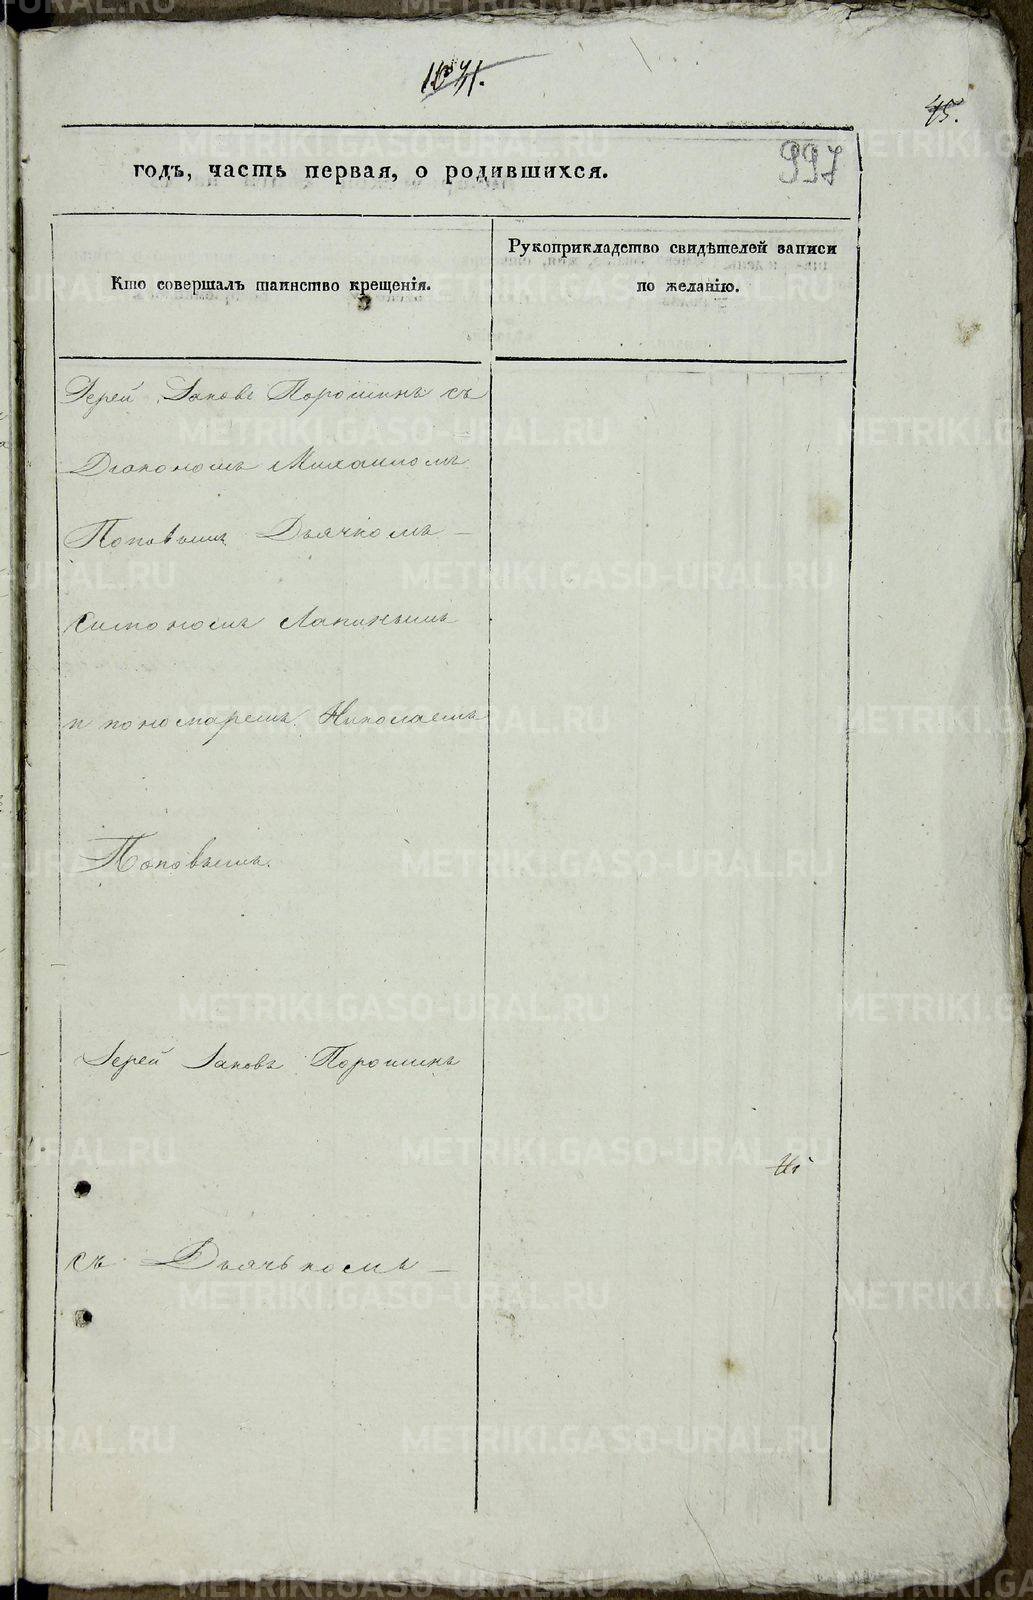 45.
997
годъ, часть первая, о родившихся.
Кто совершалъ таинство крещенія.
Рукоприкладство свидѣтелей записи
по желанію.
Іерей Іаковъ Порошинъ съ
Діакономъ Михаиломъ
Поповымъ Дьячкомъ
Симономъ Лапинымъ
и пономаремъ Николаемъ
Поповымъ.
Іерей Іаковъ Порошинъ
съ Дьячькомъ
METRIKI.GASO-URAL.RU